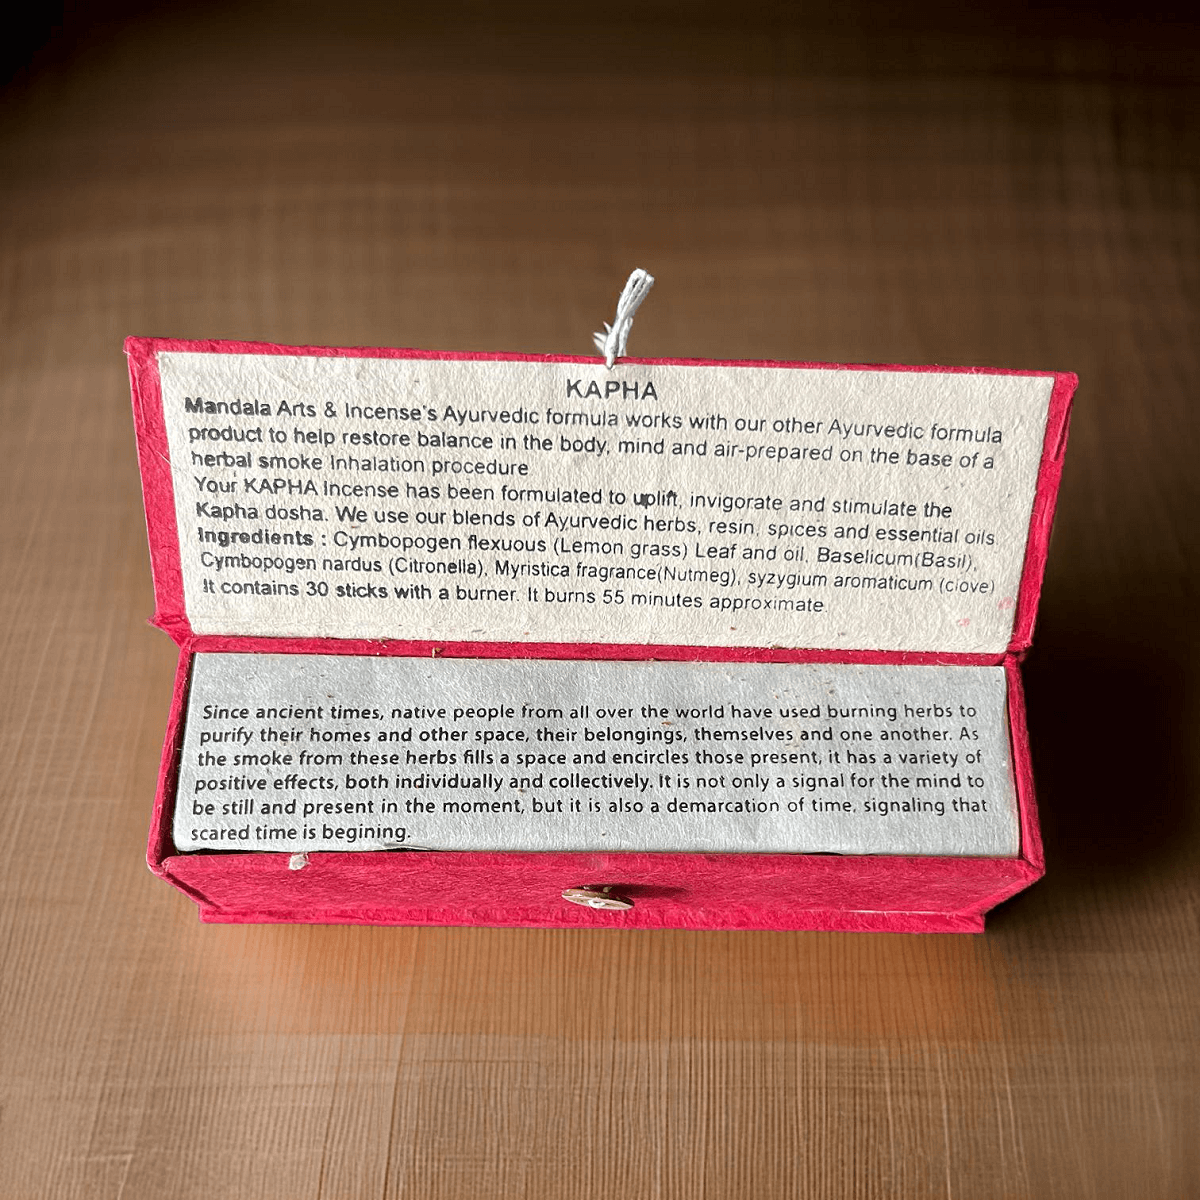 KAPHA
Mandala Arts & Incense's Ayurvedic formula works with our other Ayurvedic formula
product to help restore balance in the body, mind and air-prepared on the base of a
herbal smoke Inhalation procedure
Your KAPHA Incense has been formulated to uplift, invigorate and stimulate the
Kapha dosha. We use our blends of Ayurvedic herbs, resin, spices and essential oils.
Ingredients : Cymbopogen flexuous (Lemon grass) Leaf and oil, Baselicum(Basil),
Cymbopogen nardus (Citronella), Myristica fragrance(Nutmeg), syzygium aromaticum (clove)
It contains 30 sticks with a burner. It burns 55 minutes approximate.
Since ancient times, native people from all over the world have used burning herbs to
purify their homes and other space, their belongings, themselves and one another. As
the smoke from these herbs fills a space and encircles those present, it has a variety of
positive effects, both individually and collectively. It is not only a signal for the mind to
be still and present in the moment, but it is also a demarcation of time, signaling that
scared time is begining.